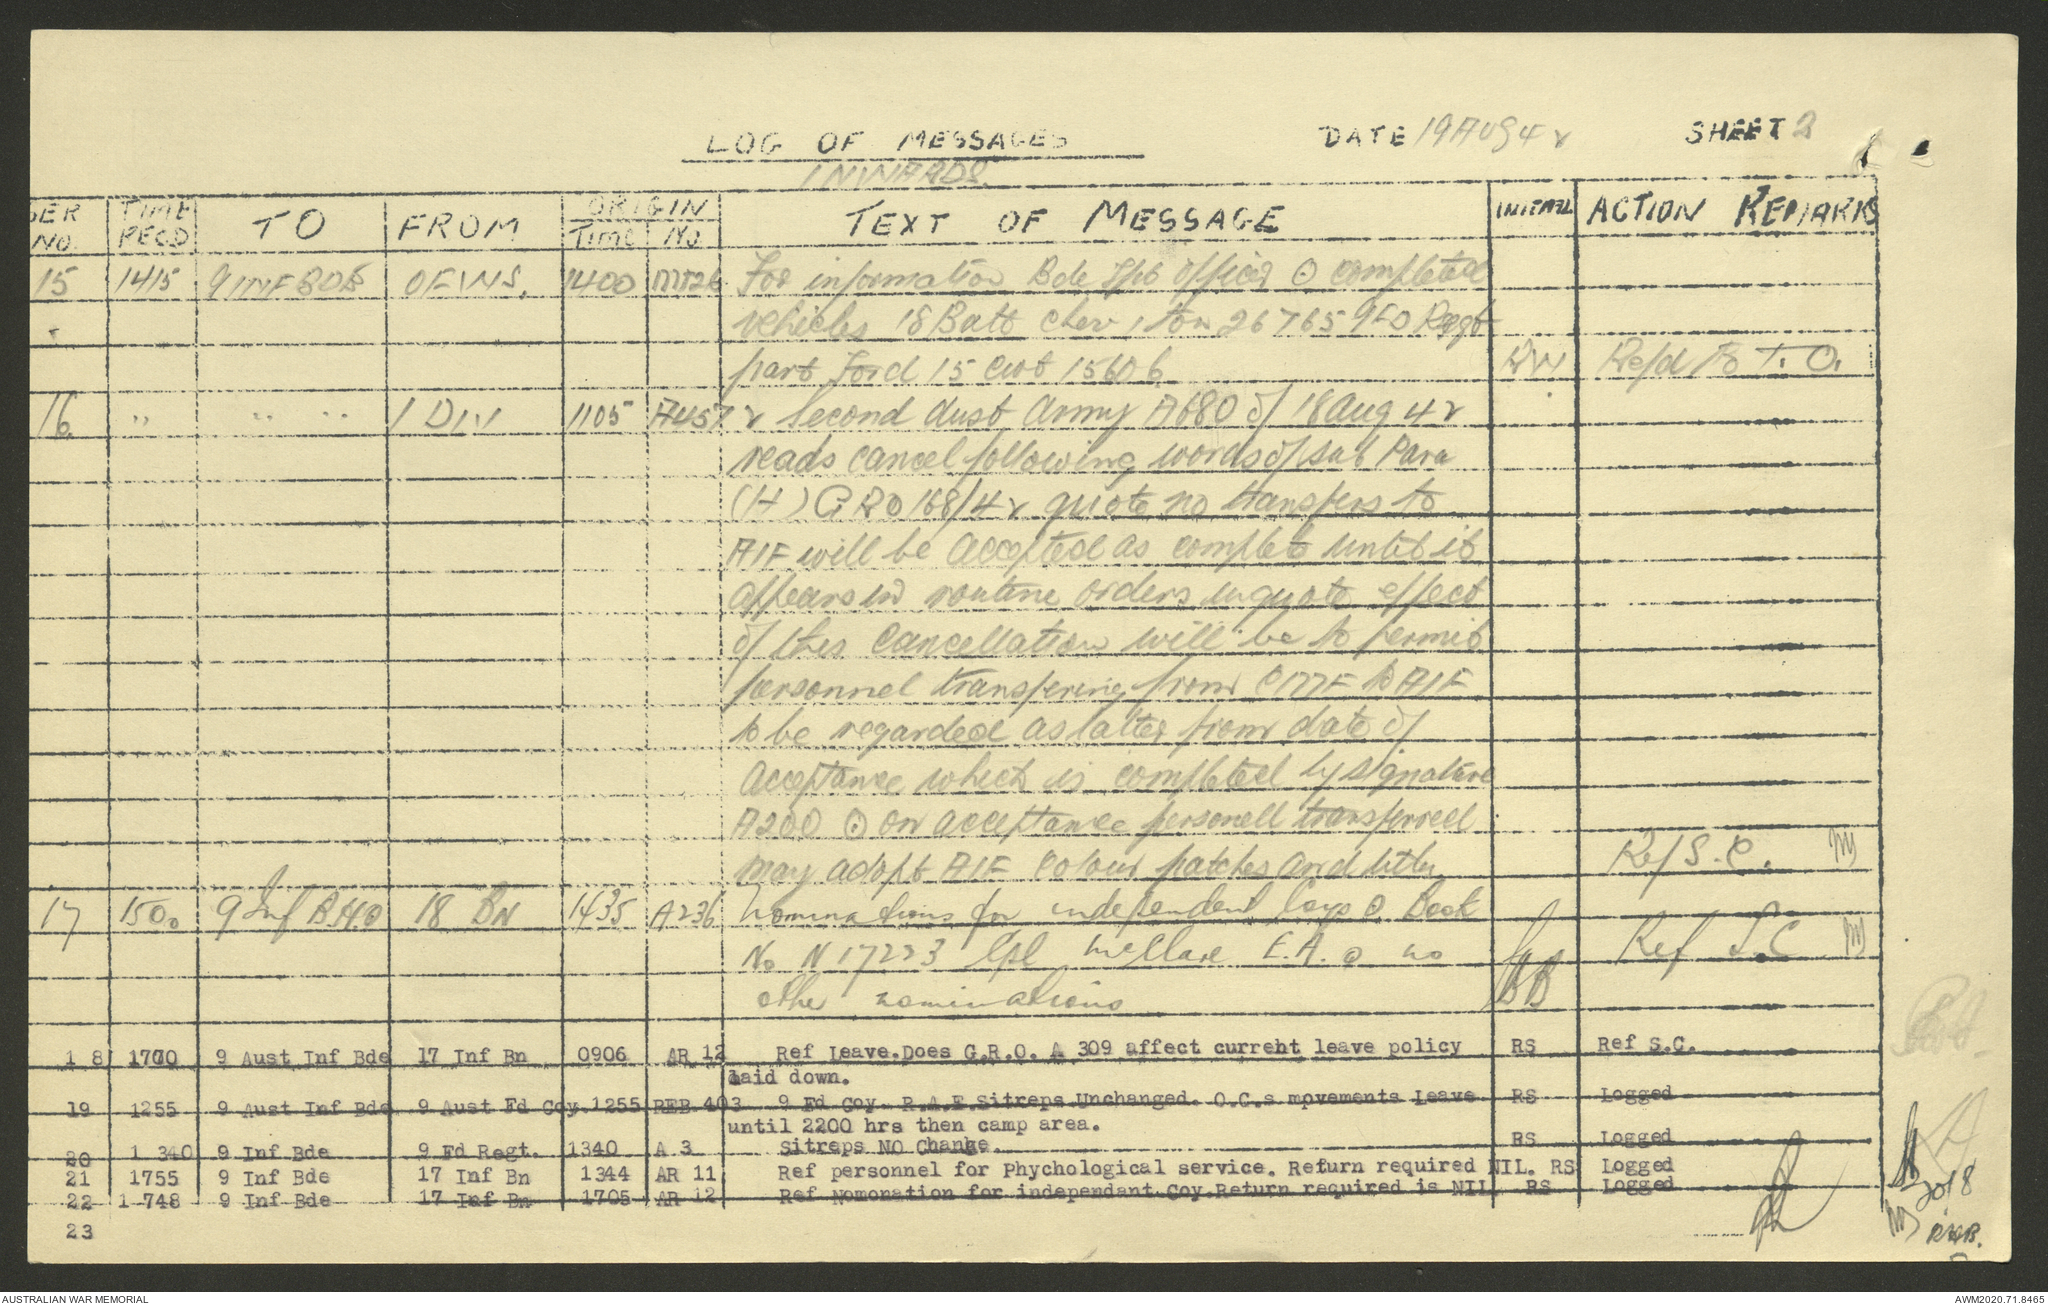 LOG OF MESSAGES DATE 19 AUG 42 SHEET 2
INWARDS
DER NO. TIME RECD TO FROM ORIGIN TIME NO. TEXT OF MESSAGE INITIAL ACTION REMARKS
15 1415 9 INF BDE OFWS. 1400 MT26 For information Bde Tpt officer ⊙ completed
vehicles 18 Batt Chev 1 ton 26765 9 FD Regt
part Ford 15 cwt 15606 Refd to T.O.
16 " " " 1 DIV 1105 A457 2 Second Aust Army A680 of 18 Aug 42
reads cancel following words of sub Para
(H) GRO 168/42 quote no transfers to
AIF will be accepted as complete until it
appears in routine orders unquote effect
of this cancellation will be to permit
personnel transfering from CMF to AIF
to be regarded as latter from date of
acceptance which is completed by signature
A200 ⊙ on acceptance personell transferred
may adopt AIF colour patches and titles Ref S.C.
17 1500 9 Inf B.H.Q 18 BN 1435 A236 Nominations for independent Coys ⊙ Book
No N17223 Cpl McClare E.A. ⊙ no Ref S.C
other nominations
1 8 1700 9 Aust Inf Bde 17 Inf Bn 0906 AR 12 Ref Leave.Does G.R.O. A 309 affect current leave policy RS Ref S.C.
laid down.
19 1255 9 Aust Inf Bde 9 Aust Fd Coy 1255 REB 403 9 Fd Coy R.A.E.Sitreps Unchanged. O.C.s movements Leave RS Logged
until 2200 hrs then camp area.
20 1 340 9 Inf Bde 9 Fd Regt. 1340 A 3 Sitreps NO Change. RS Logged
21 1755 9 Inf Bde 17 Inf Bn 1344 AR 11 Ref personnel for Phychological service. Return required NIL. RS Logged
22 1 748 9 Inf Bde 17 Inf Bn 1705 AR 12 Ref Nomonation for independant Coy.Return required is NIL RS Logged
23
20/8
AUSTRALIAN WAR MEMORIAL AWM2020.71.8465